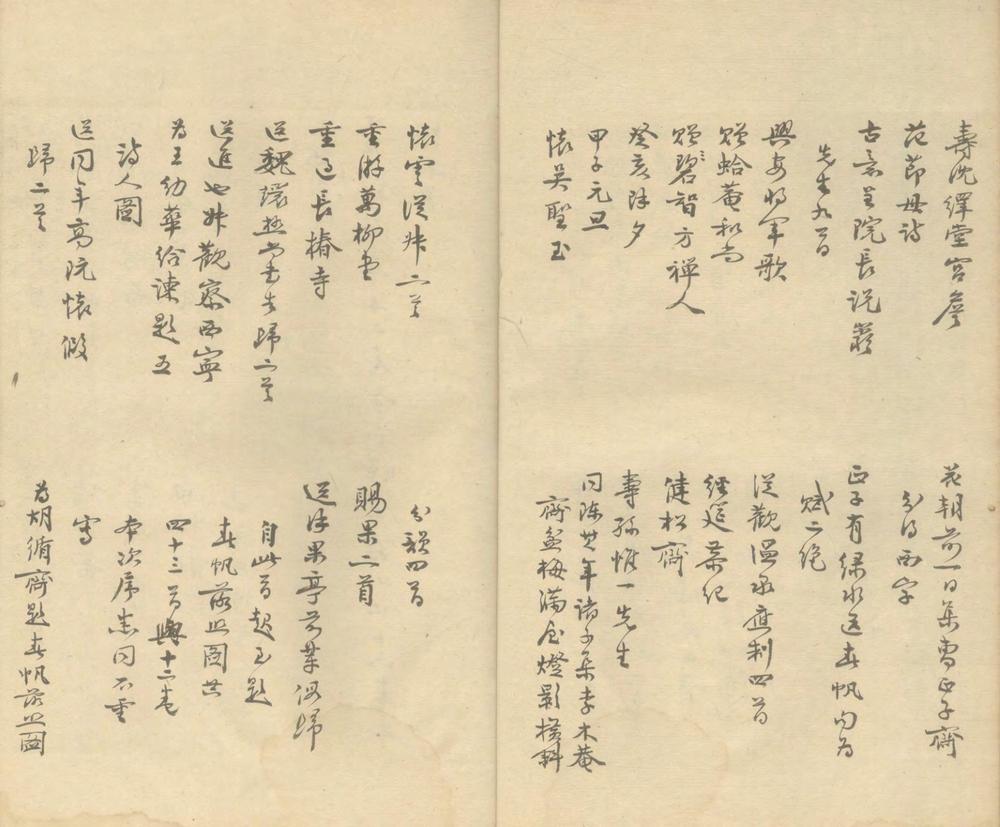 壽沈繹堂宮詹
范節母詩
古意呈院長説巖
先生九首
興安將軍歌
贈蛤菴和尚
贈碧智方禪人
癸亥除夕
甲子元旦
懷吳聖玉
花朝前一日集曹正子齋
分得西字
正子有綠水送春帆句為
賦二絶
從觀溫泉應制四首
經筵恭紀
健松齋
壽孫惟一先生
同陳其年諸子集李木菴
齋盆梅滿屋燈影橫斜
懷雲從叔二首
重游萬柳堂
重過長椿寺
送魏環極尚書告歸二首
送進也叔觀察西寧
為王幼華給諫題五
詩人圖
送同年高阮懷假
歸二首
分韻四首
賜果二首
送徐果亭前輩假歸
自此首起至題
春帆落照圖共
四十三首與十二卷
本次序悉同不重
寫
為胡循齋題春帆落照圖